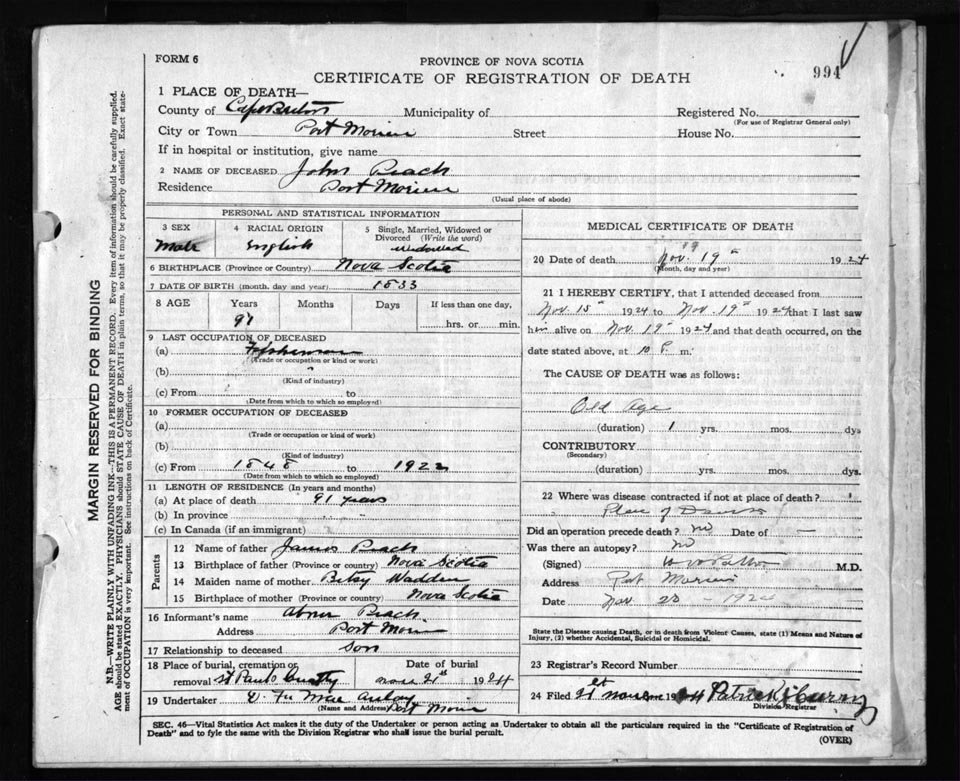 FORM 6
PROVINCE OF NOVA SCOTIA
CERTIFICATE OF REGISTRATION OF DEATH
994
1 PLACE OF DEATH—
County of Cape Breton Municipality of Registered No.
(For use of Registrar General only)
City or Town Port Morien Street House No.
If in hospital or institution, give name
2 NAME OF DECEASED John Peach
Residence Port Morien
(Usual place of abode)
PERSONAL AND STATISTICAL INFORMATION
3 SEX 4 RACIAL ORIGIN 5 Single, Married, Widowed or
Divorced (Write the word)
Male English Widowed
6 BIRTHPLACE (Province or Country) Nova Scotia
7 DATE OF BIRTH (month, day and year) 1833
8 AGE Years Months Days If less than one day,
91 hrs. or min.
9 LAST OCCUPATION OF DECEASED
(a) Fisherman
(Trade or occupation or kind or work)
(b) "
(Kind of industry)
(c) From to
(Date from which to which so employed)
10 FORMER OCCUPATION OF DECEASED
(a)
(Trade or occupation or kind of work)
(b)
(Kind of industry)
(c) From 1848 to 1922
(Date from which to which so employed)
11 LENGTH OF RESIDENCE (In years and months)
(a) At place of death 91 years
(b) In province " "
(c) In Canada (if an immigrant)
Parents
12 Name of father James Peach
13 Birthplace of father (Province or country) Nova Scotia
14 Maiden name of mother Betsy Wadden
15 Birthplace of mother (Province or country) Nova Scotia
16 Informant's name Abner Peach
Address Port Morien
17 Relationship to deceased Son
18 Place of burial, cremation or Date of burial
removal St Pauls 21st 1924
19 Undertaker
(Name and Address) Port Morien
MEDICAL CERTIFICATE OF DEATH
19
20 Date of death Nov. 19th 1924
(Month, day and year)
21 I HEREBY CERTIFY, that I attended deceased from
Nov 15th 1924 to Nov 19th 1924 that I last saw
him alive on Nov 19th 1924 and that death occurred, on the
date stated above, at 10 P. m.
The CAUSE OF DEATH was as follows:
Old Age
(duration) 1 yrs. mos. dys
CONTRIBUTORY
(Secondary)
(duration) yrs. mos. dys.
22 Where was disease contracted if not at place of death?
Place of
Did an operation precede death? no Date of —
Was there an autopsy? no
(Signed) M.D.
Address Port Morien
Date Nov. 20 - 1924
State the Disease causing Death, or in death from Violent Causes, state (1) Means and Nature of
Injury, (2) whether Accidental, Suicidal or Homicidal.
23 Registrar's Record Number
24 Filed 21st 1924 Patrick Curry
Division Registrar
SEC. 46—Vital Statistics Act makes it the duty of the Undertaker or person acting as Undertaker to obtain all the particulars required in the "Certificate of Registration of
Death" and to fyle the same with the Division Registrar who shall issue the burial permit.
(OVER)
MARGIN RESERVED FOR BINDING
N.B.—WRITE PLAINLY WITH UNFADING INK—THIS IS A PERMANENT RECORD. Every item of information should be carefully supplied.
AGE should be stated EXACTLY. PHYSICIANS should STATE CAUSE OF DEATH in plain terms, so that it may be properly classified. Exact state-
ment of OCCUPATION is very important. See instructions on back of Certificate.